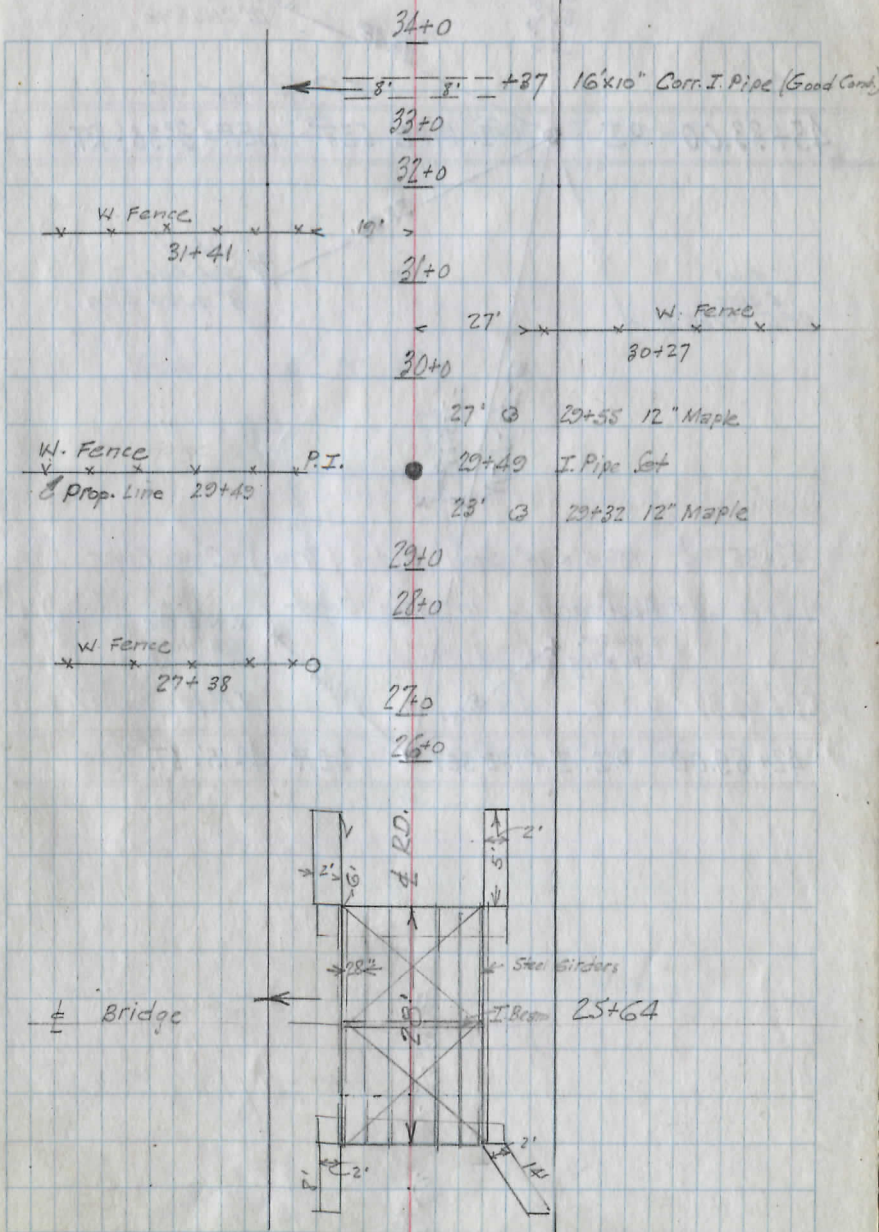 34+0
8' 8' +37 16'x10" Corr. I. Pipe (Good Cond.)
33+0
32+0
W. Fence
19'
31+41
31+0
27' W. Fence
30+27
30+0
27' 29+55 12" Maple
W. Fence P.I. 29+49 I. Pipe Set
& Prop. Line 29+49
23' 29+32 12" Maple
29+0
28+0
W. Fence
27+38
27+0
26+0
℄ RD.
2' 6' 5' 2'
28" Steel Girders
℄ Bridge 28' I. Beam 25+64
8' 2' 2' 14'